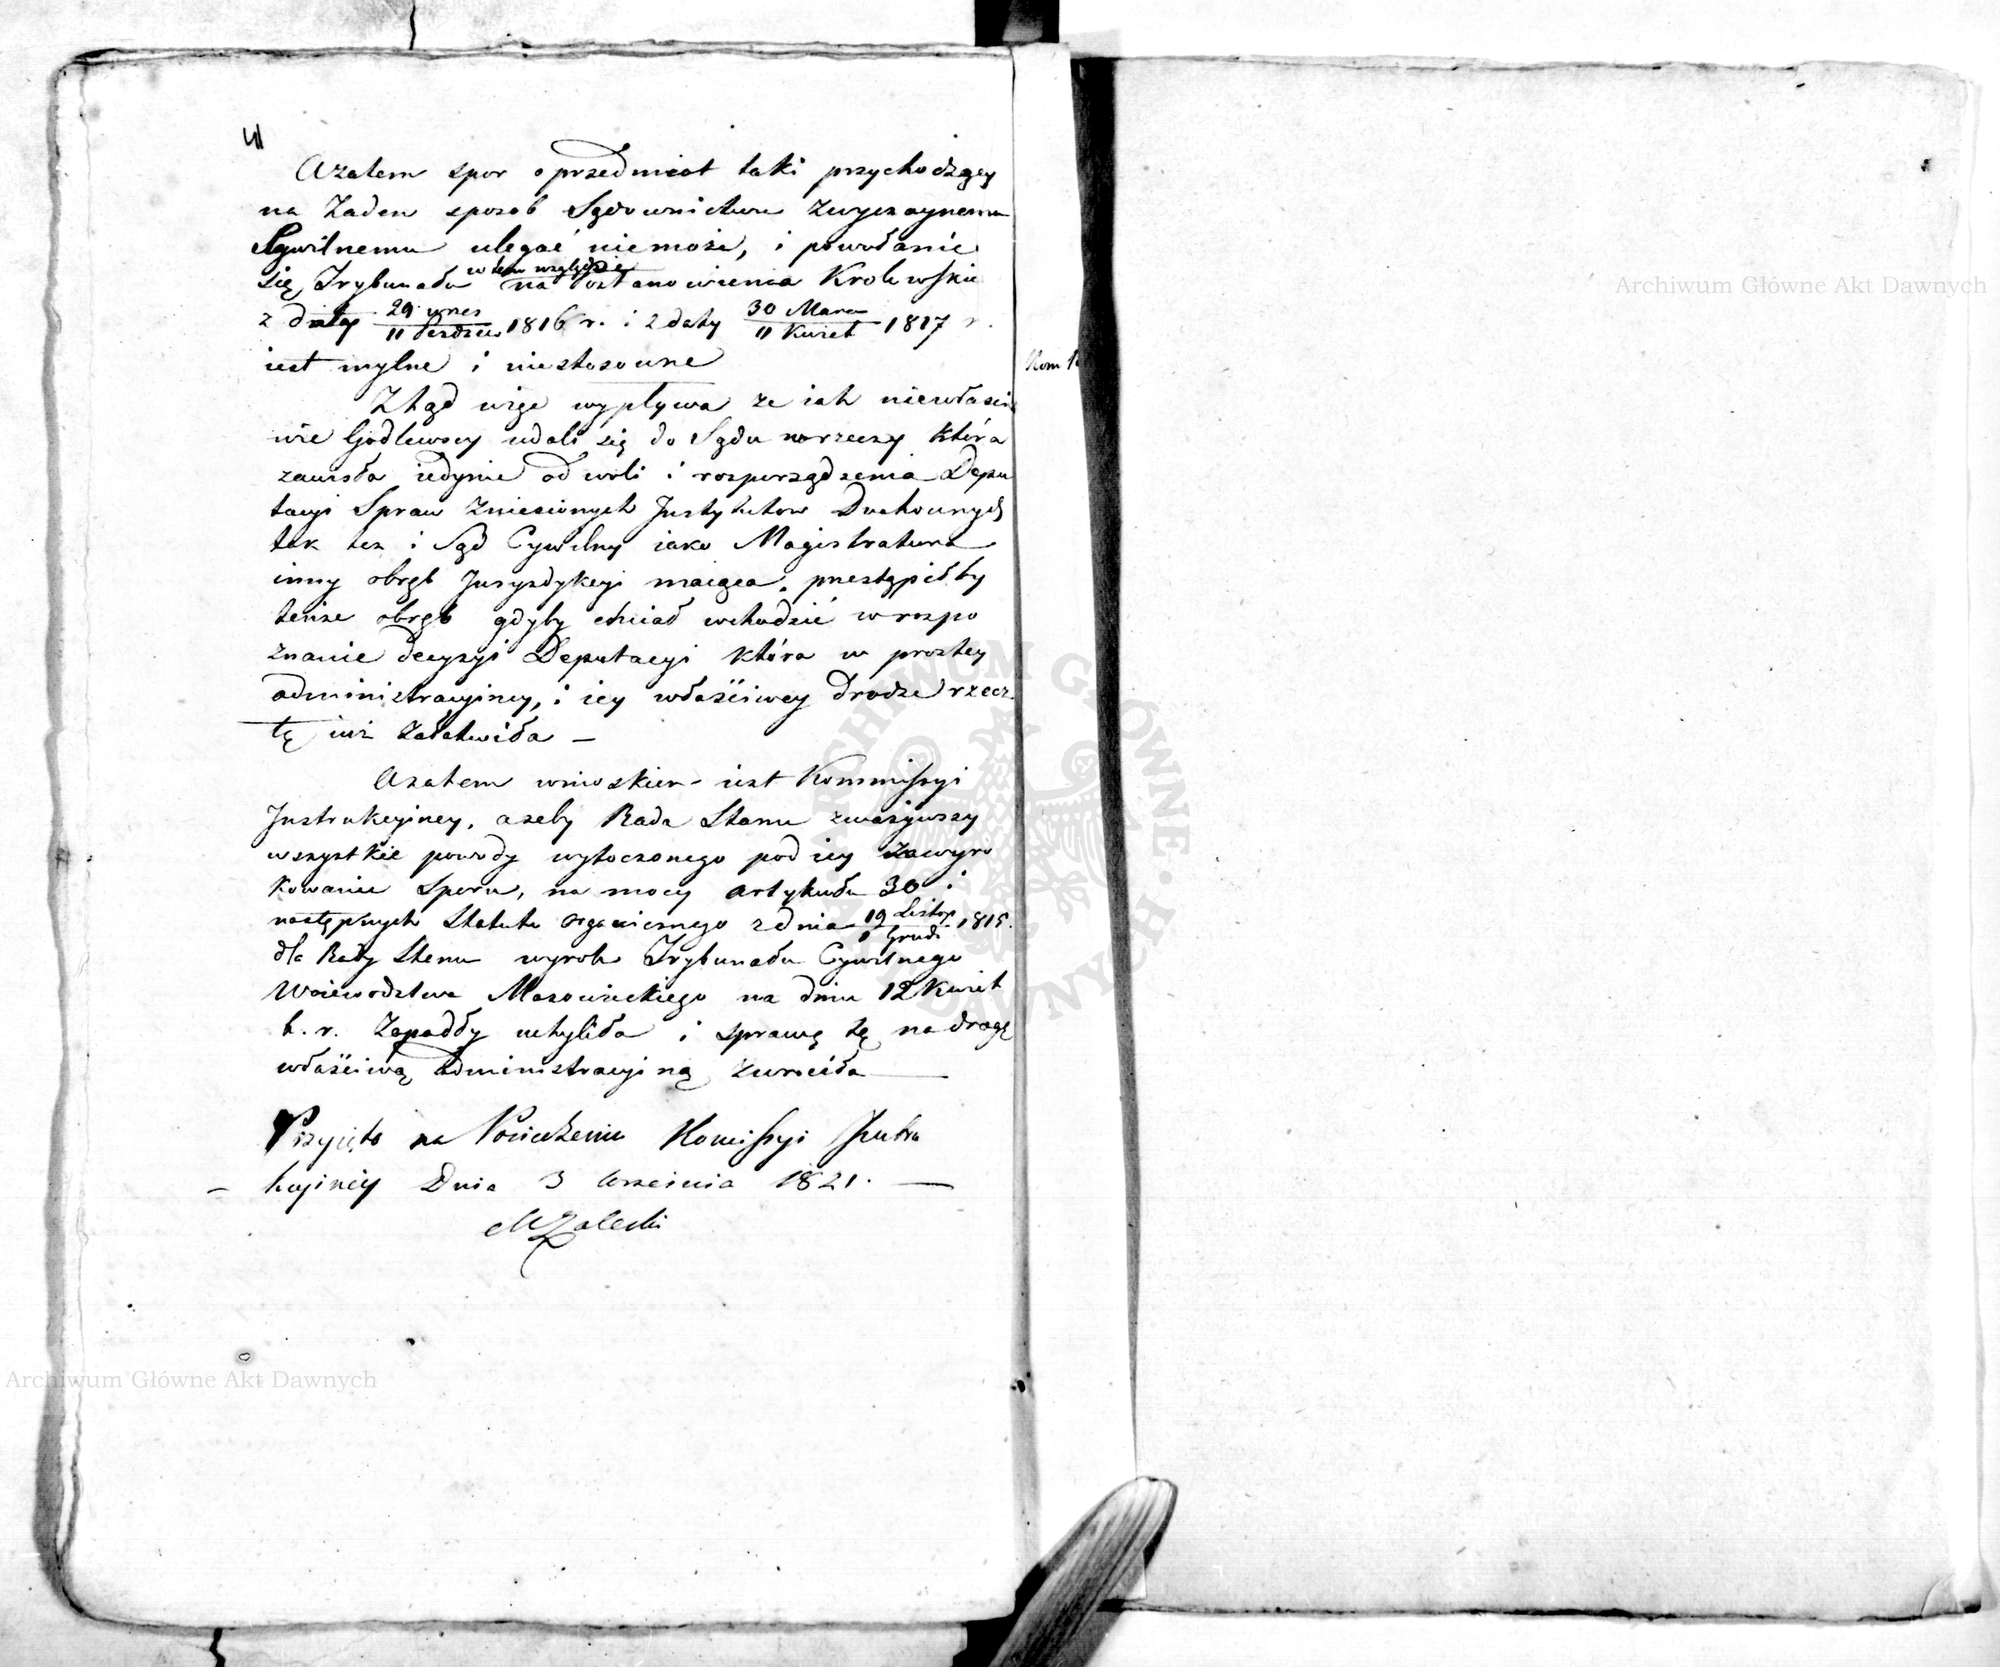 Azatem spor o przedmiot taki przychodzący
na żaden sposob Sądownictwu zwyczaynemu
Sywilnemu ulegać niemoże, i powołanie
się Trybunału w tem względzie na postanowienia Krolewskie
z daty 29 wrzes / 11 Pazdzier 1816 r. i z daty 30 Marca / 11 Kwiet 1817 r.
iest mylne i niestosowne
Ztąd więc wypływa ze iak niewłaści
wie Godlewscy udali się do Sądu w rzeczy która
zawisła iedynie od woli i rozporządzenia Depu
tacyi Spraw Zniesionych Instytutow Duchownych
tak tez i Sąd Cywilny iako Magistratura
inny obręb Jurysdykcyi maiąca, przestąpiłby
tenże obręb gdyby chciał wchodzić w rozpo
znanie decyzyi Deputacyi która w prostey
administracyiney, i iey właściwey drodze rzecz
tę iuż załatwiła –
Azatem wnioskiem iest Kommissyi
Instrukcyiney, azeby Rada Stanu zważywszy
wszystkie powody wytoczonego pod iey zawyro
kowanie sporu, na mocy artykułu 30 i
następnych Statutu organicznego z dnia 19 Listop / 1 Grud 1815.
dla Rady Stanu wyrok Trybunału Cywilnego
Woiewodztwa Mazowieckiego na dniu 12 Kwiet
b. r. zapadły uchyliła i sprawę tę na drogę
właściwą administracyiną zwróciła —
Przyięto na Posiedzeniu Komissyi Instru
– kcyiney Dnia 3 Września 1821. —
MZaleski
Archiwum Główne Akt Dawnych
Archiwum Główne Akt Dawnych
ARCHIWUM GŁÓWNE AKT DAWNYCH